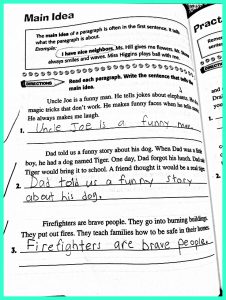 Main Idea
The main idea of a paragraph is often in the first sentence. It tells
what the paragraph is about.
Example:
I have nice neighbors. Ms. Hill gives me flowers. Mr.
always smiles and waves. Miss Higgins plays ball with me.
DIRECTIONS
Read each paragraph. Write the sentence that tells the
main idea.
Uncle Joe is a funny man. He tells jokes about elephants.
magic tricks that don't work. He makes funny faces when he
He always makes me laugh.
1. Uncle Joe is a funny man.
Dad told us a funny story about his dog. When Dad was a little
boy, he had a dog named Tiger. One day, Dad forgot his lunch. Dad
Tiger would bring it to school. A friend thought it would be a real tiger.
2. Dad told us a funny story
about his dog.
Firefighters are brave people. They go into burning buildings.
They put out fires. They teach families how to be safe in their homes.
3. Firefighters are brave people.
Pract
DIRECTIONS